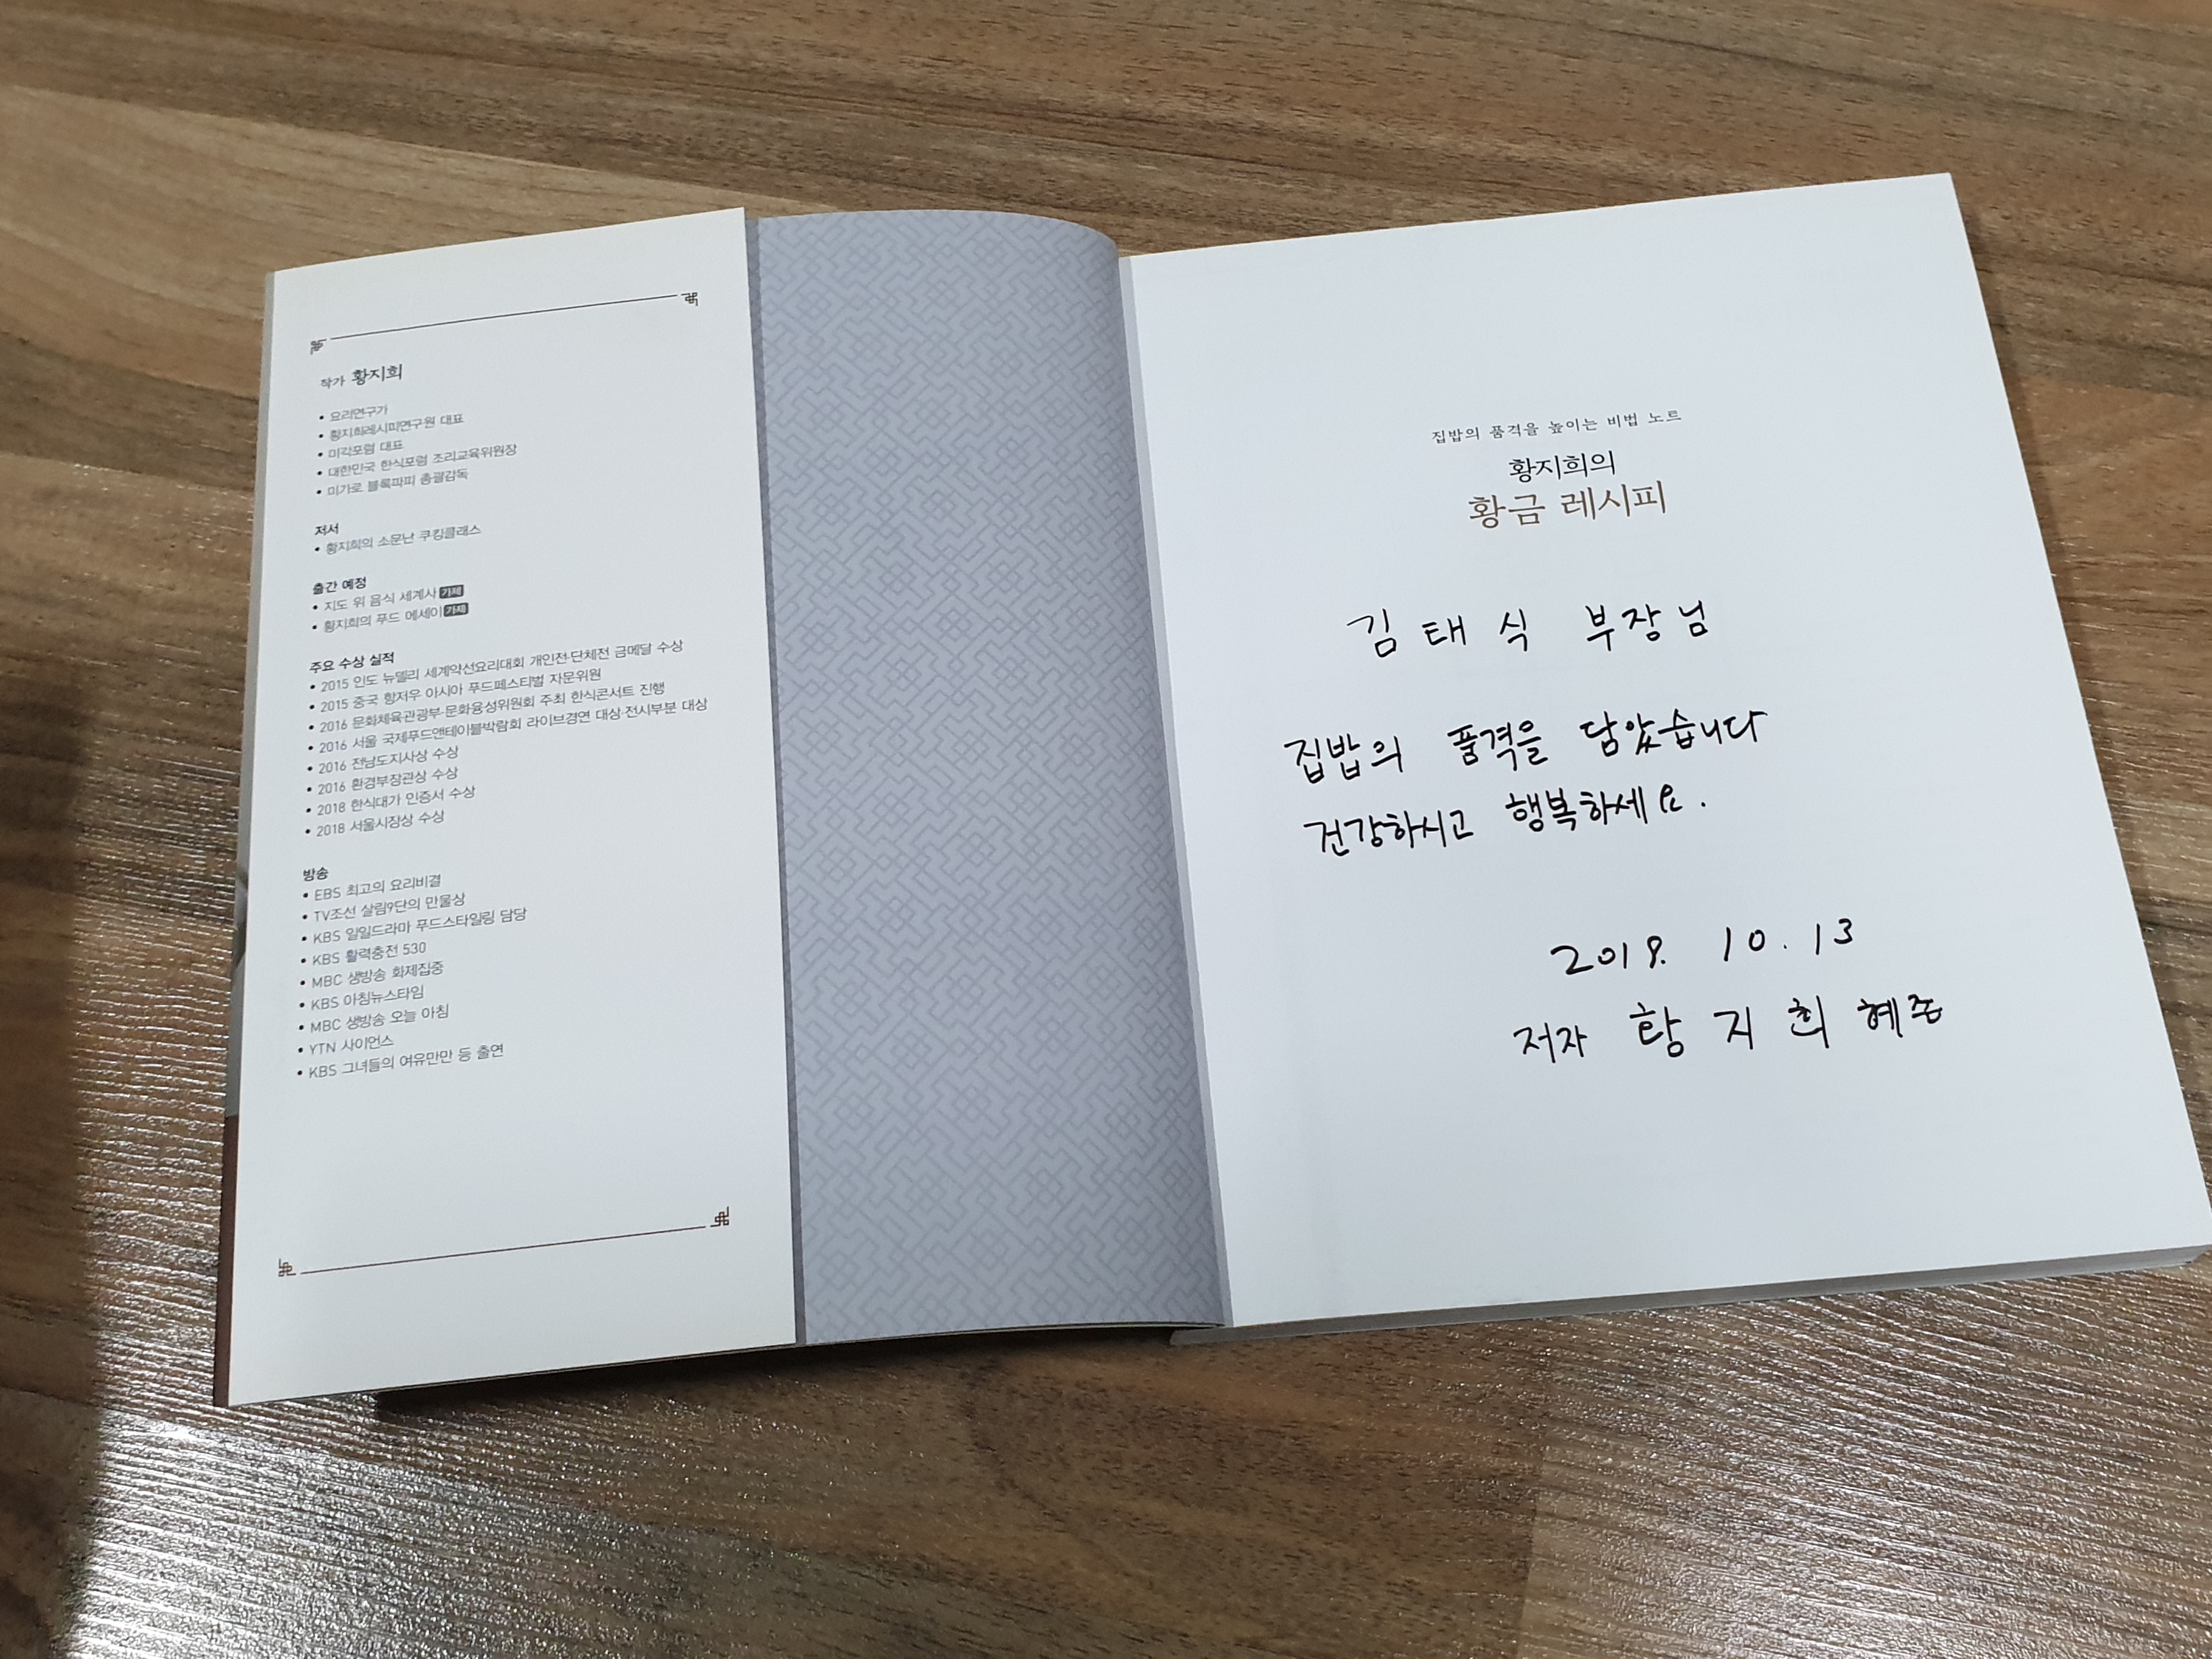 작가 황지희
• 요리연구가
• 황지희레시피연구원 대표
• 미각포럼 대표
• 대한민국 한식포럼 조리교육위원장
• 미가로 블록파피 총괄감독
저서
• 황지희의 소문난 쿠킹클래스
출간 예정
• 지도 위 음식 세계사 가제
• 황지희의 푸드 에세이 가제
주요 수상 실적
• 2015 인도 뉴델리 세계약선요리대회 개인전·단체전 금메달 수상
• 2015 중국 항저우 아시아 푸드페스티벌 자문위원
• 2016 문화체육관광부·문화융성위원회 주최 한식콘서트 진행
• 2016 서울 국제푸드앤테이블박람회 라이브경연 대상·전시부분 대상
• 2016 전남도지사상 수상
• 2016 환경부장관상 수상
• 2018 한식대가 인증서 수상
• 2018 서울시장상 수상
방송
• EBS 최고의 요리비결
• TV조선 살림9단의 만물상
• KBS 일일드라마 푸드스타일링 담당
• KBS 활력충전 530
• MBC 생방송 화제집중
• KBS 아침뉴스타임
• MBC 생방송 오늘 아침
• YTN 사이언스
• KBS 그녀들의 여유만만 등 출연
집밥의 품격을 높이는 비법 노트
황지희의
황금 레시피
김태식 부장님
집밥의 품격을 담았습니다
건강하시고 행복하세요.
2019. 10. 13
저자 황지희 혜존